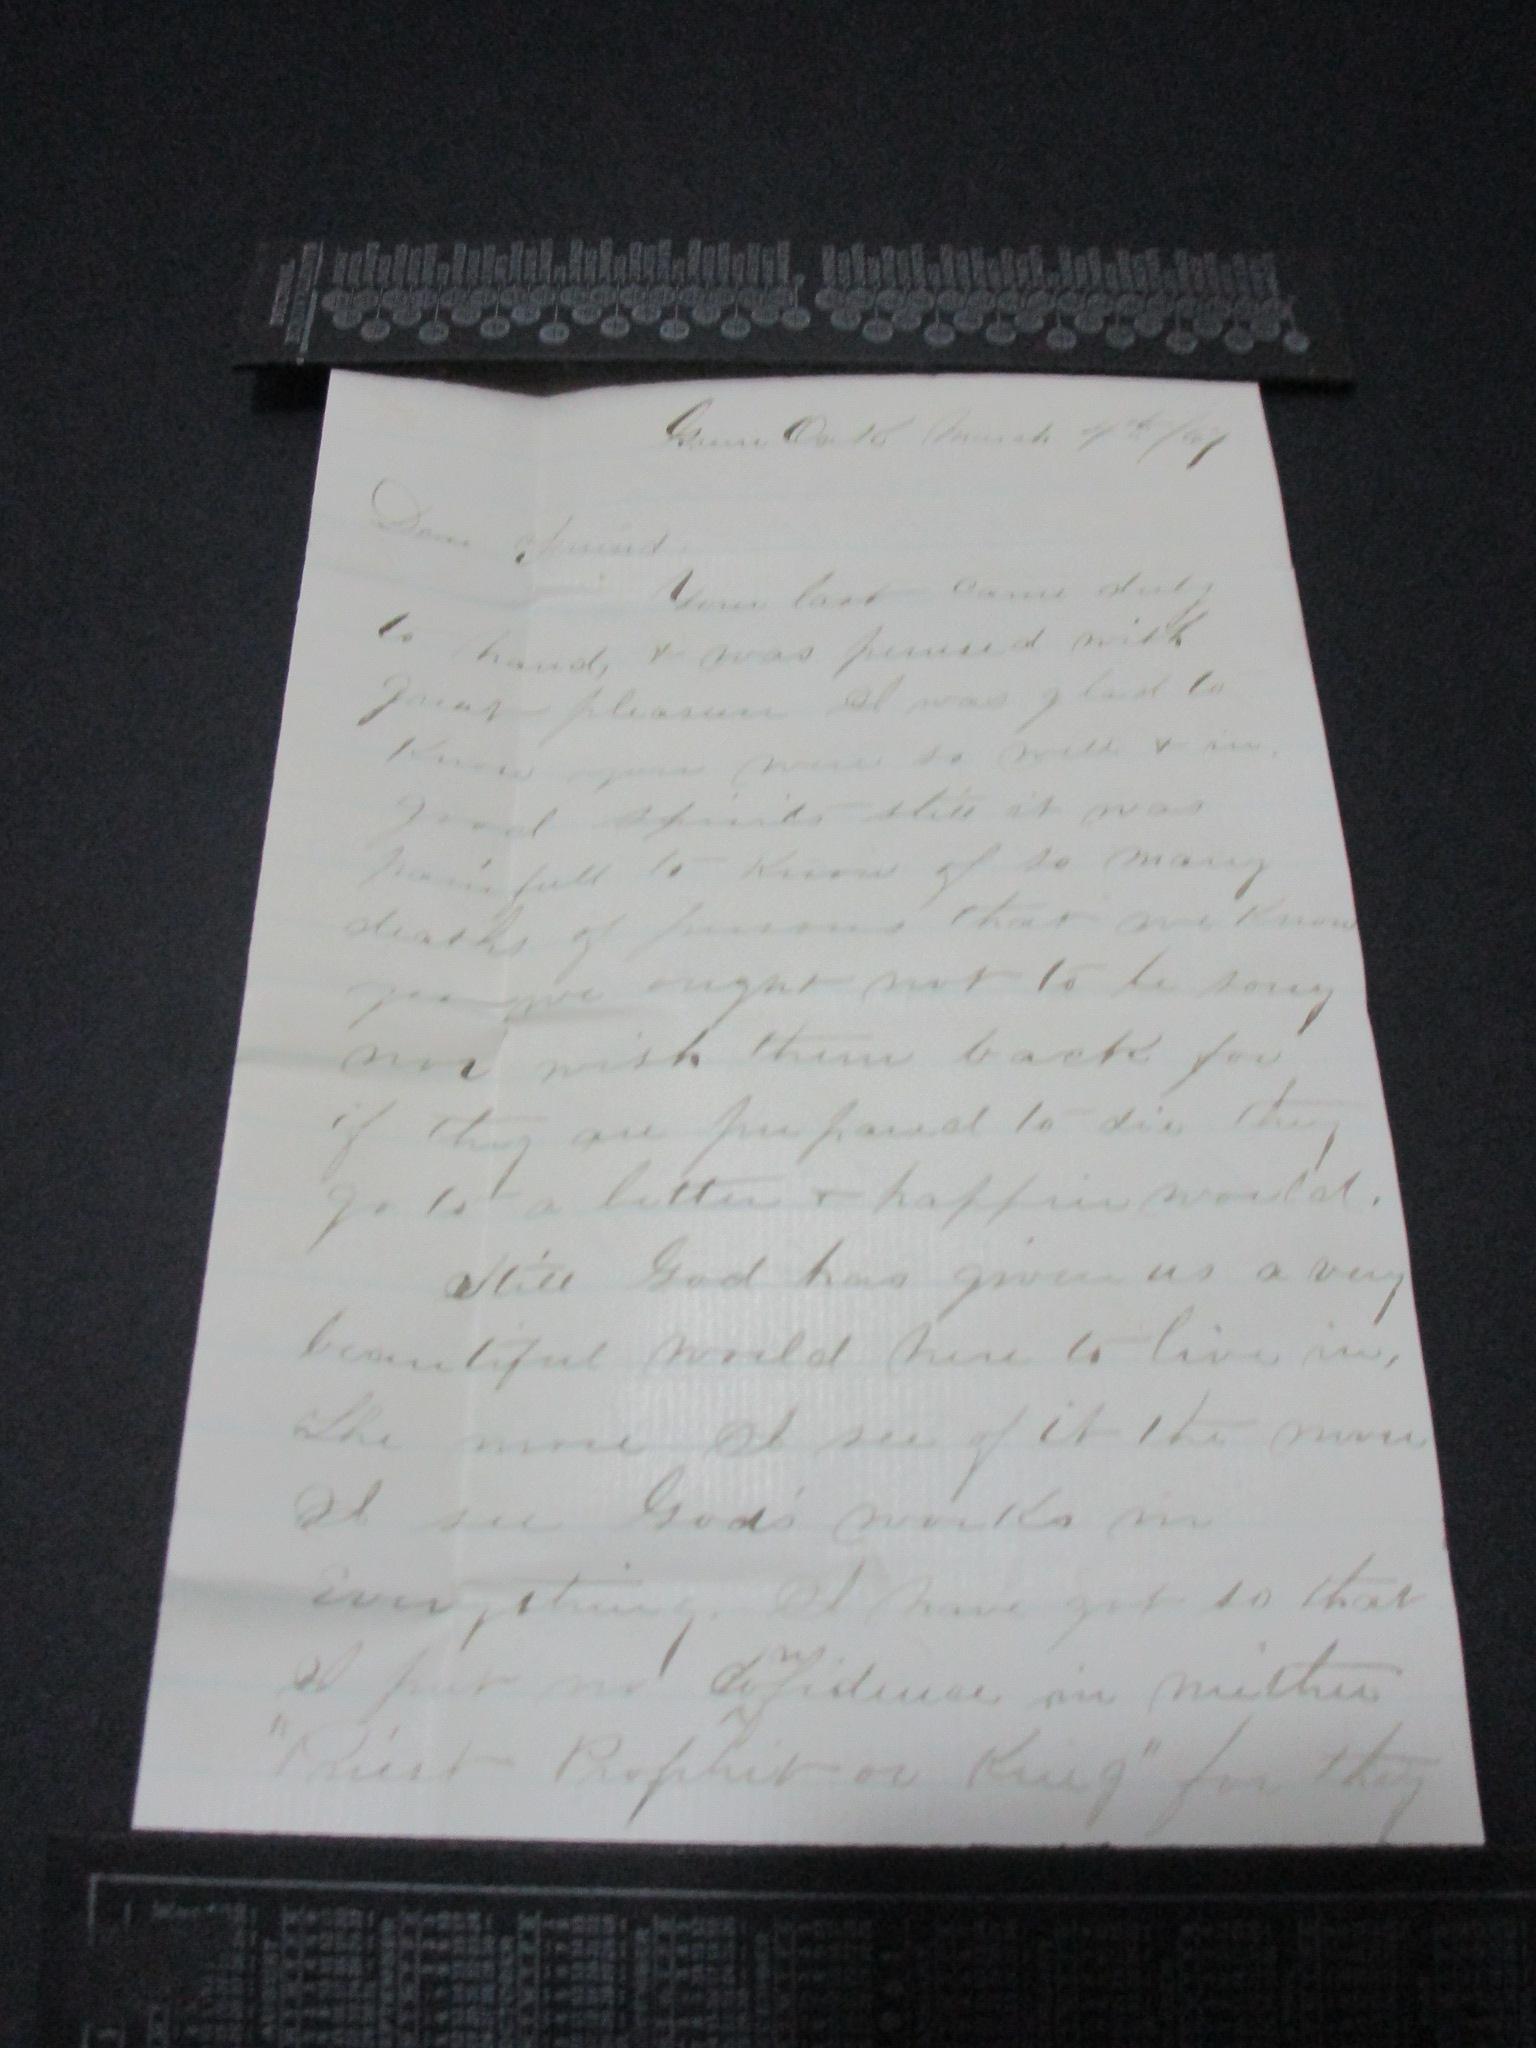 Green Oak March 4th /67
Dear Friend.
Your last came duly
to hand, & was perused with
great pleasure I was glad to
know you were so well & in
good spirits still it was
painfull to know of so many
deaths of persons that we know
yea we ought not to be sorry
nor wish them back for
if they are prepared to die they
go to a better & happier world.
Still God has given us a very
beautiful world here to live in,
The more I see of it the more
I see God's works in
Everything. I have got so that
I put no Confidence in neither
"Priest Prophet or King" for they